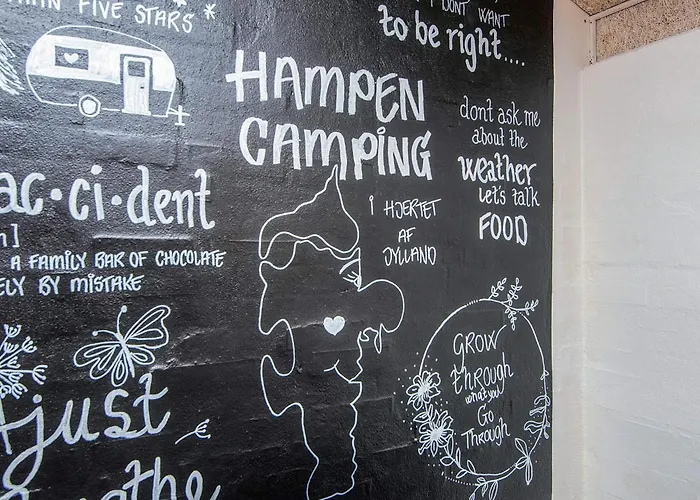 FIVE STARS
DONT WANT
to be right....
HAMPEN
CAMPING
i HJERTET
AF
JYLLAND
dont ask me
about the
weather
Let's talk
FOOD
ac·ci·dent
A FAMILY BAR OF CHOCOLATE
BY MISTAKE
GROW
through
what you
Go
Through
just